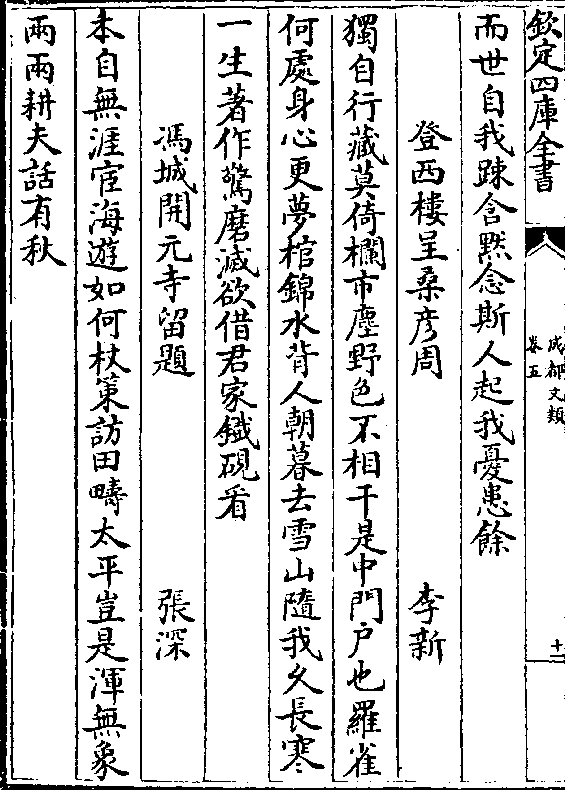 欽定四庫全書
成都文類
卷五
十二
而世自我踈含黙念斯人起我憂患餘
登西樓呈桑彦周 李新
獨自行藏莫倚欄市塵野色不相干是中門戸也羅雀
何處身心更夢棺錦水背人朝暮去雪山隨我久長寒
一生著作驚磨滅欲借君家鐡硯看
馮城開元寺留題 張深
本自無涯宦海遊如何杖策訪田疇太平豈是渾無象
兩兩耕夫話有秋